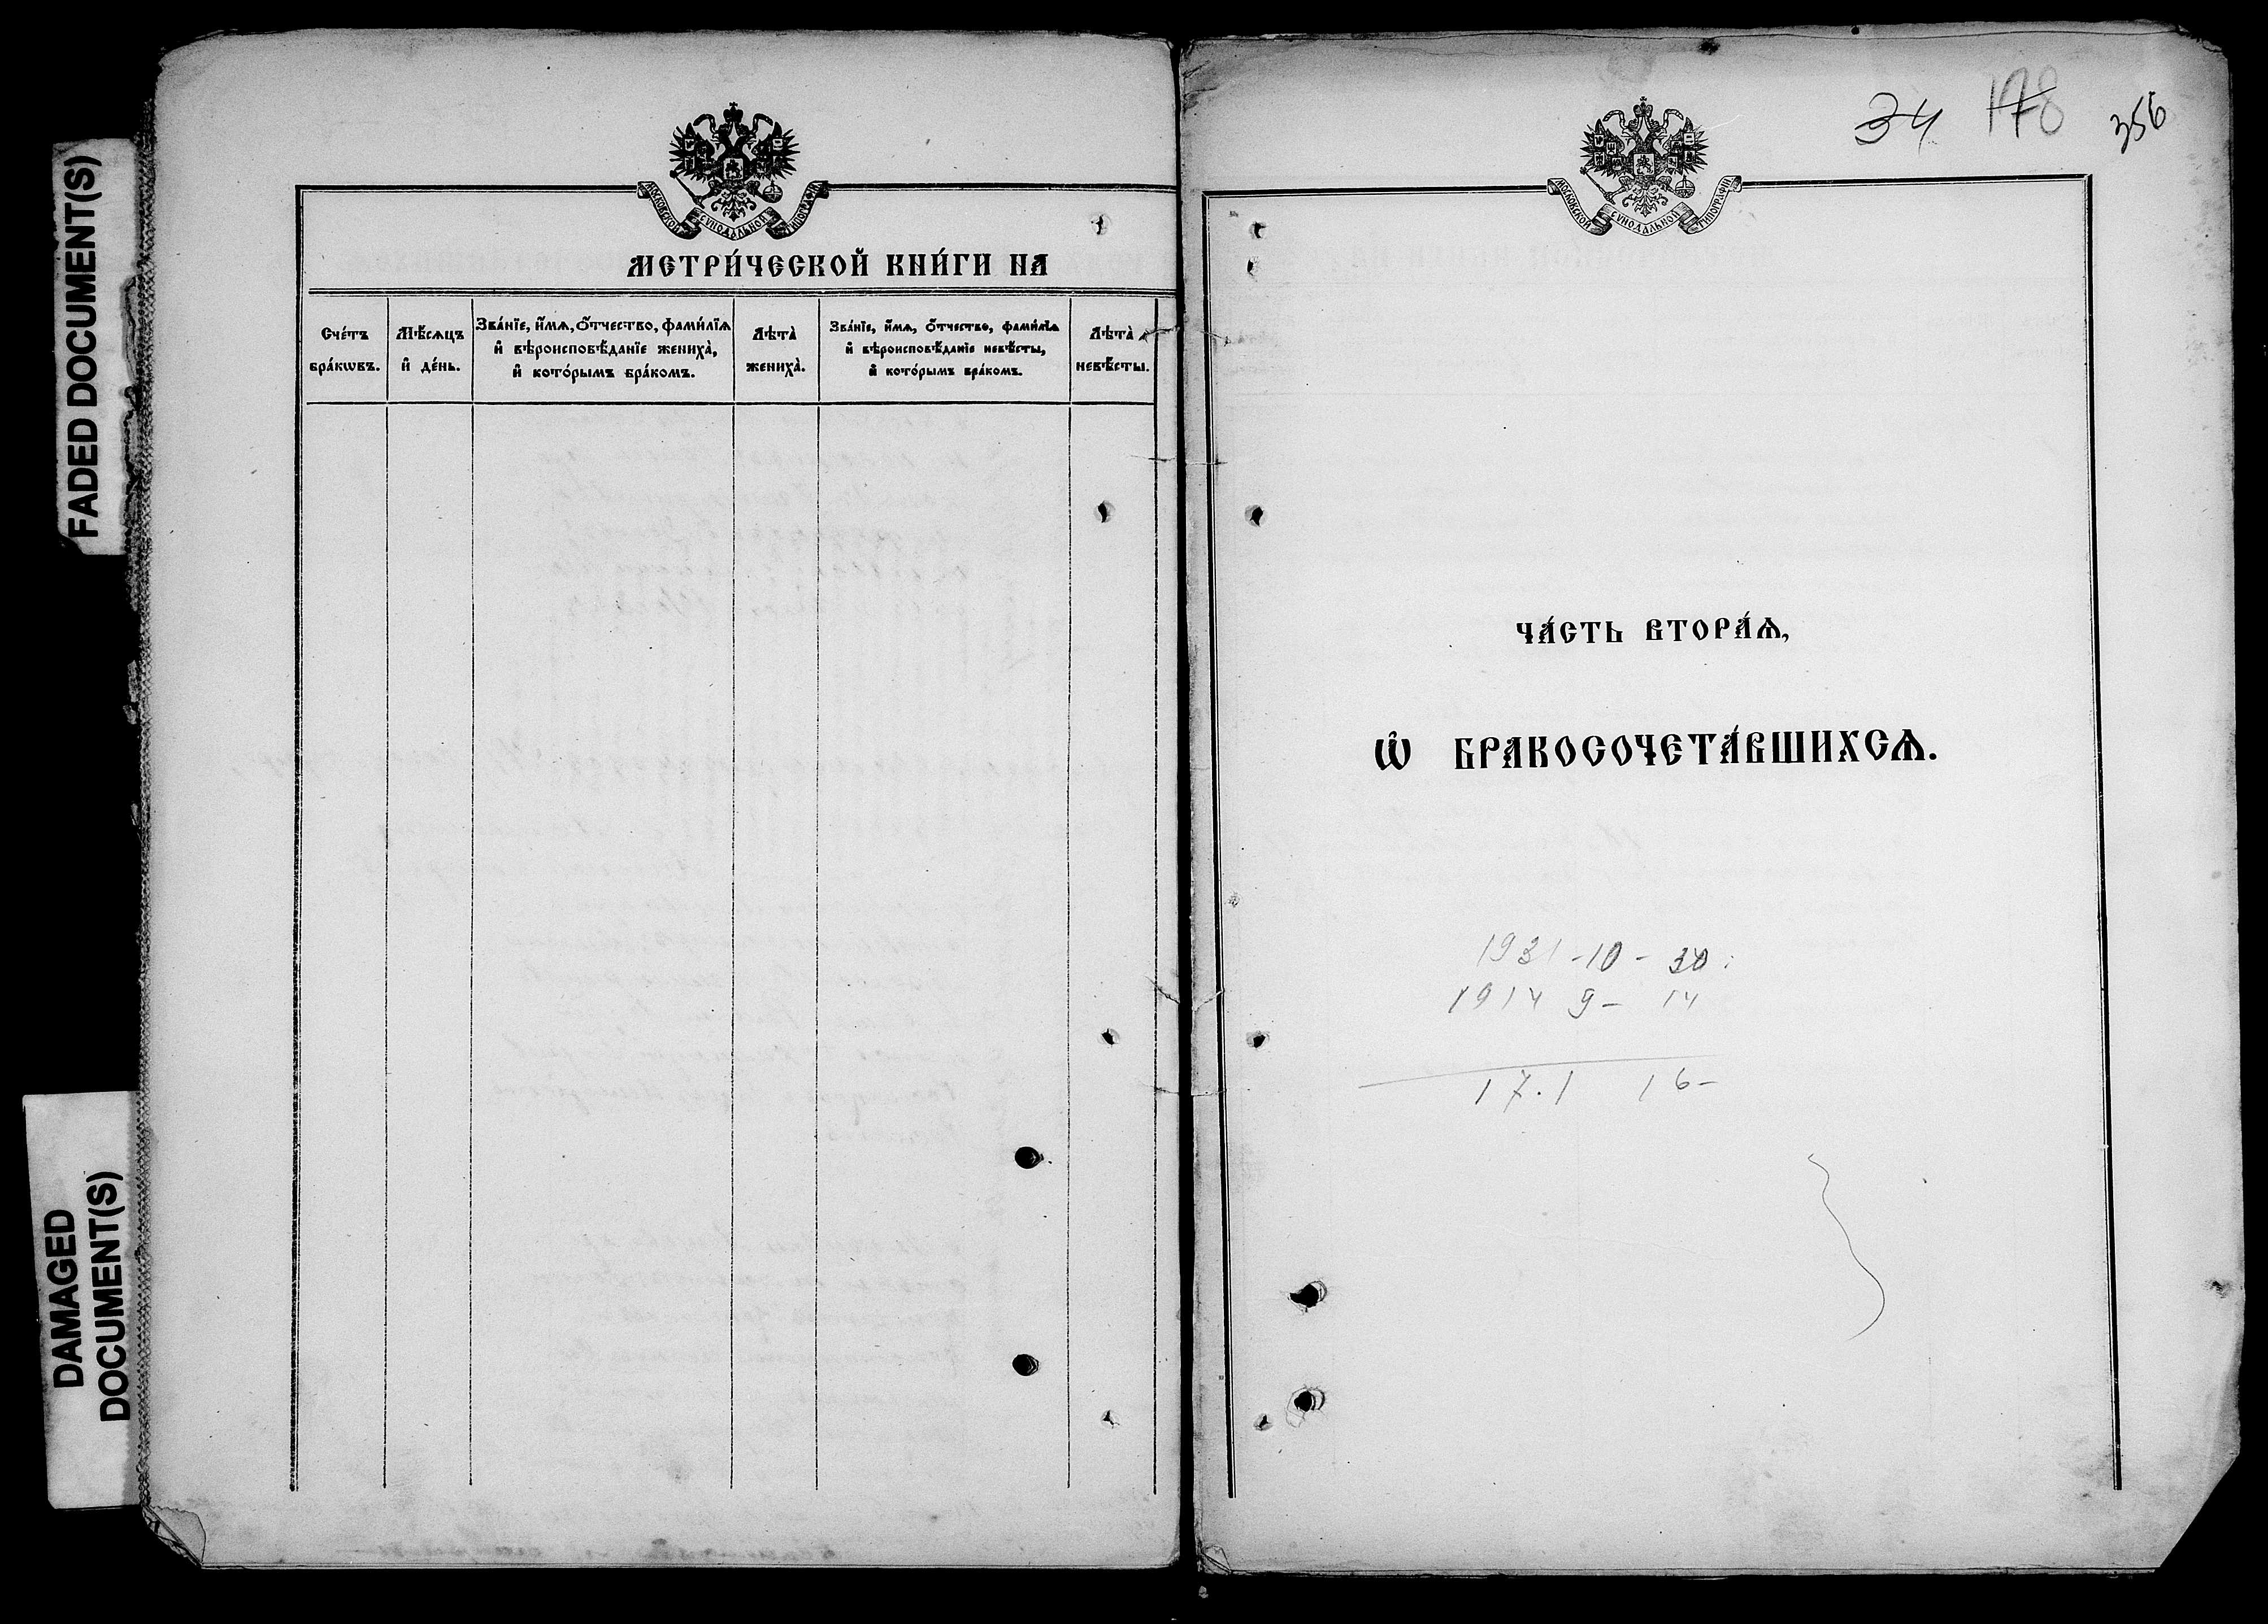 FADED DOCUMENT(S)
DAMAGED
DOCUMENT(S)
МОСКОВСКОЙ СѴНОДАЛЬНОЙ ТИПОГРАФІИ
МЕТРИ́ЧЕСКОЙ КНИ́ГИ НА
Сче́тъ
бра́кѡвъ.
Мѣ́сѧцъ
и҆ де́нь.
Зва́нїе, и҆́мѧ, ѻ҆́тчество, фами́лїѧ
и҆ вѣроисповѣ́данїе жениха̀,
и҆ кото́рымъ бра́комъ.
Лѣта̀
жениха̀.
Зва́нїе, и҆́мѧ, ѻ҆́тчество, фами́лїѧ
и҆ вѣроисповѣ́данїе невѣ́сты,
и҆ кото́рымъ бра́комъ.
Лѣта̀
невѣ́сты.
34 178 356
МОСКОВСКОЙ СѴНОДАЛЬНОЙ ТИПОГРАФІИ
ЧА́СТЬ ВТОРА́Ѧ,
Ѡ҆ БРАКОСОЧЕТА́ВШИХСѦ.
1931-10-30
1914 9- 14
17.1 16-